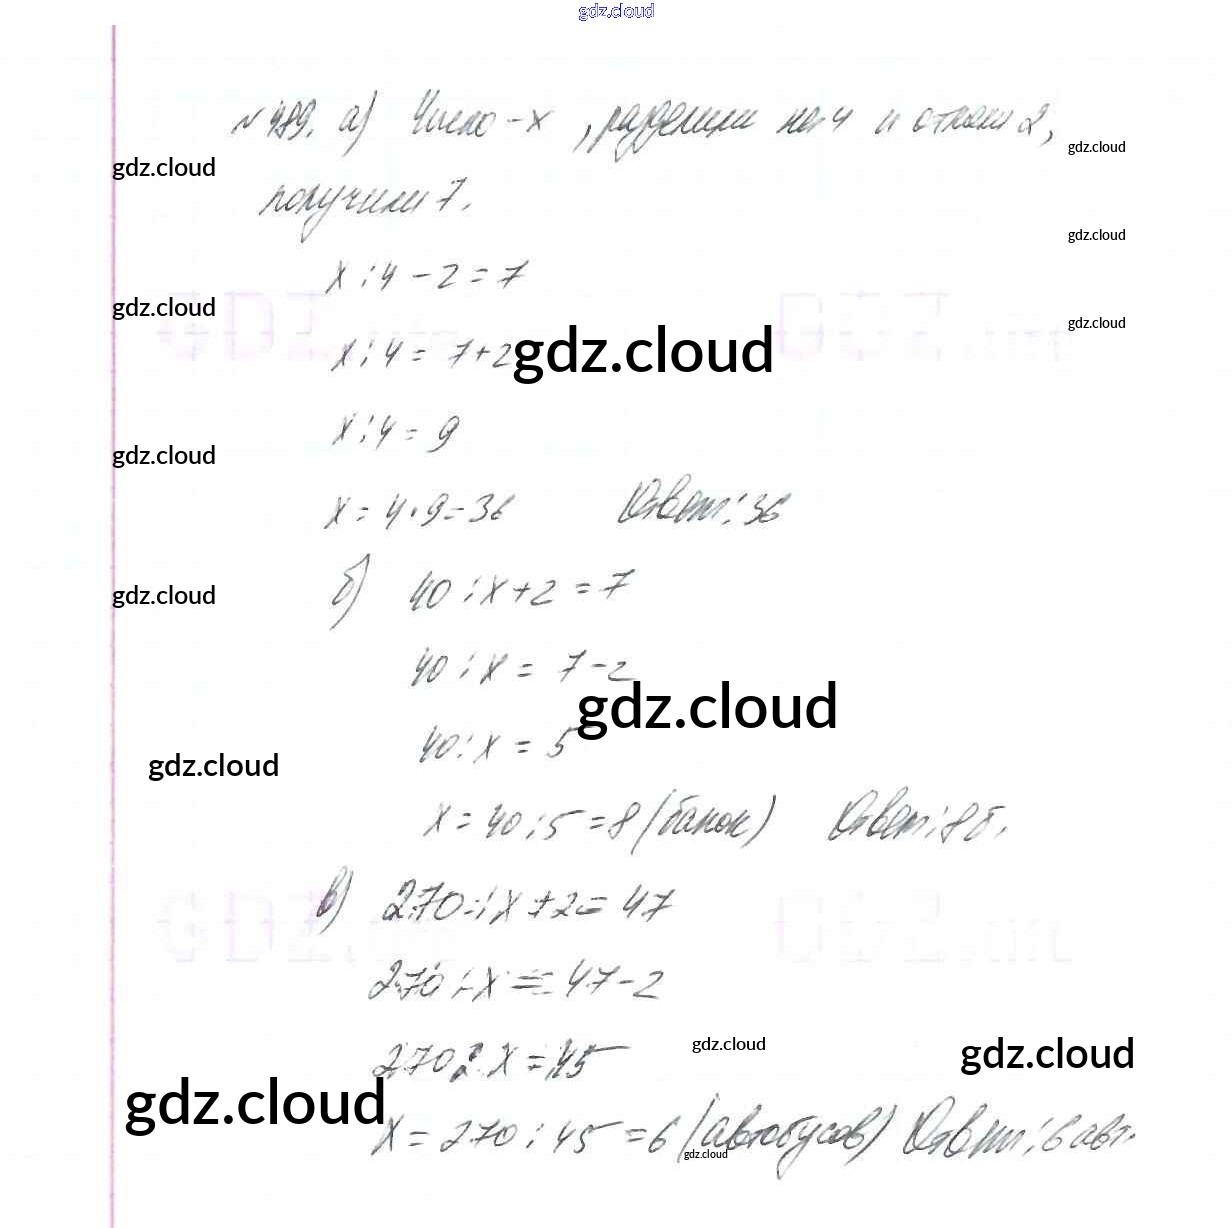 gdz.cloud
№ 489. а) Число - x, разделили на 4 и отняли 2,
gdz.cloud
gdz.cloud
получили 7.
gdz.cloud
x : 4 - 2 = 7
gdz.cloud
gdz.cloud
x : 4 = 7+2
gdz.cloud
x : 4 = 9
gdz.cloud
x = 4 · 9 = 36 Ответ: 36
б) 40 : x + 2 = 7
gdz.cloud
40 : x = 7 - 2
gdz.cloud
40 : x = 5
gdz.cloud
x = 40 : 5 = 8 (банок) Ответ: 8 б.
в) 270 : x + 2 = 47
270 : x = 47 - 2
gdz.cloud
gdz.cloud
270 : x = 45
gdz.cloud
x = 270 : 45 = 6 (автобусов) Ответ: 6 авт.
gdz.cloud